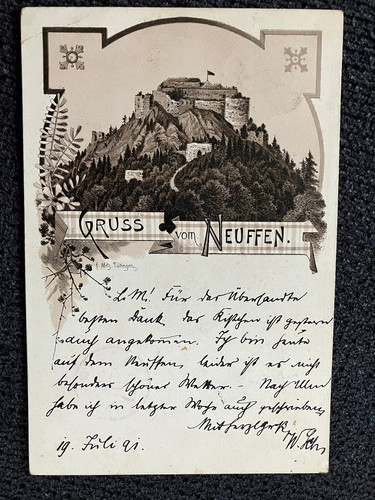 GRUSS vom NEUFFEN.
L. M! Für das Übersandte
besten Dank, das Kistchen ist gestern
auch angekommen. Ich bin heute
auf dem Neuffen, leider ist es nicht
besonders schönes Wetter. – Nach Ulm
habe ich in letzter Woche auch geschrieben.
Mit herzl. Gruß
19. Juli 91.